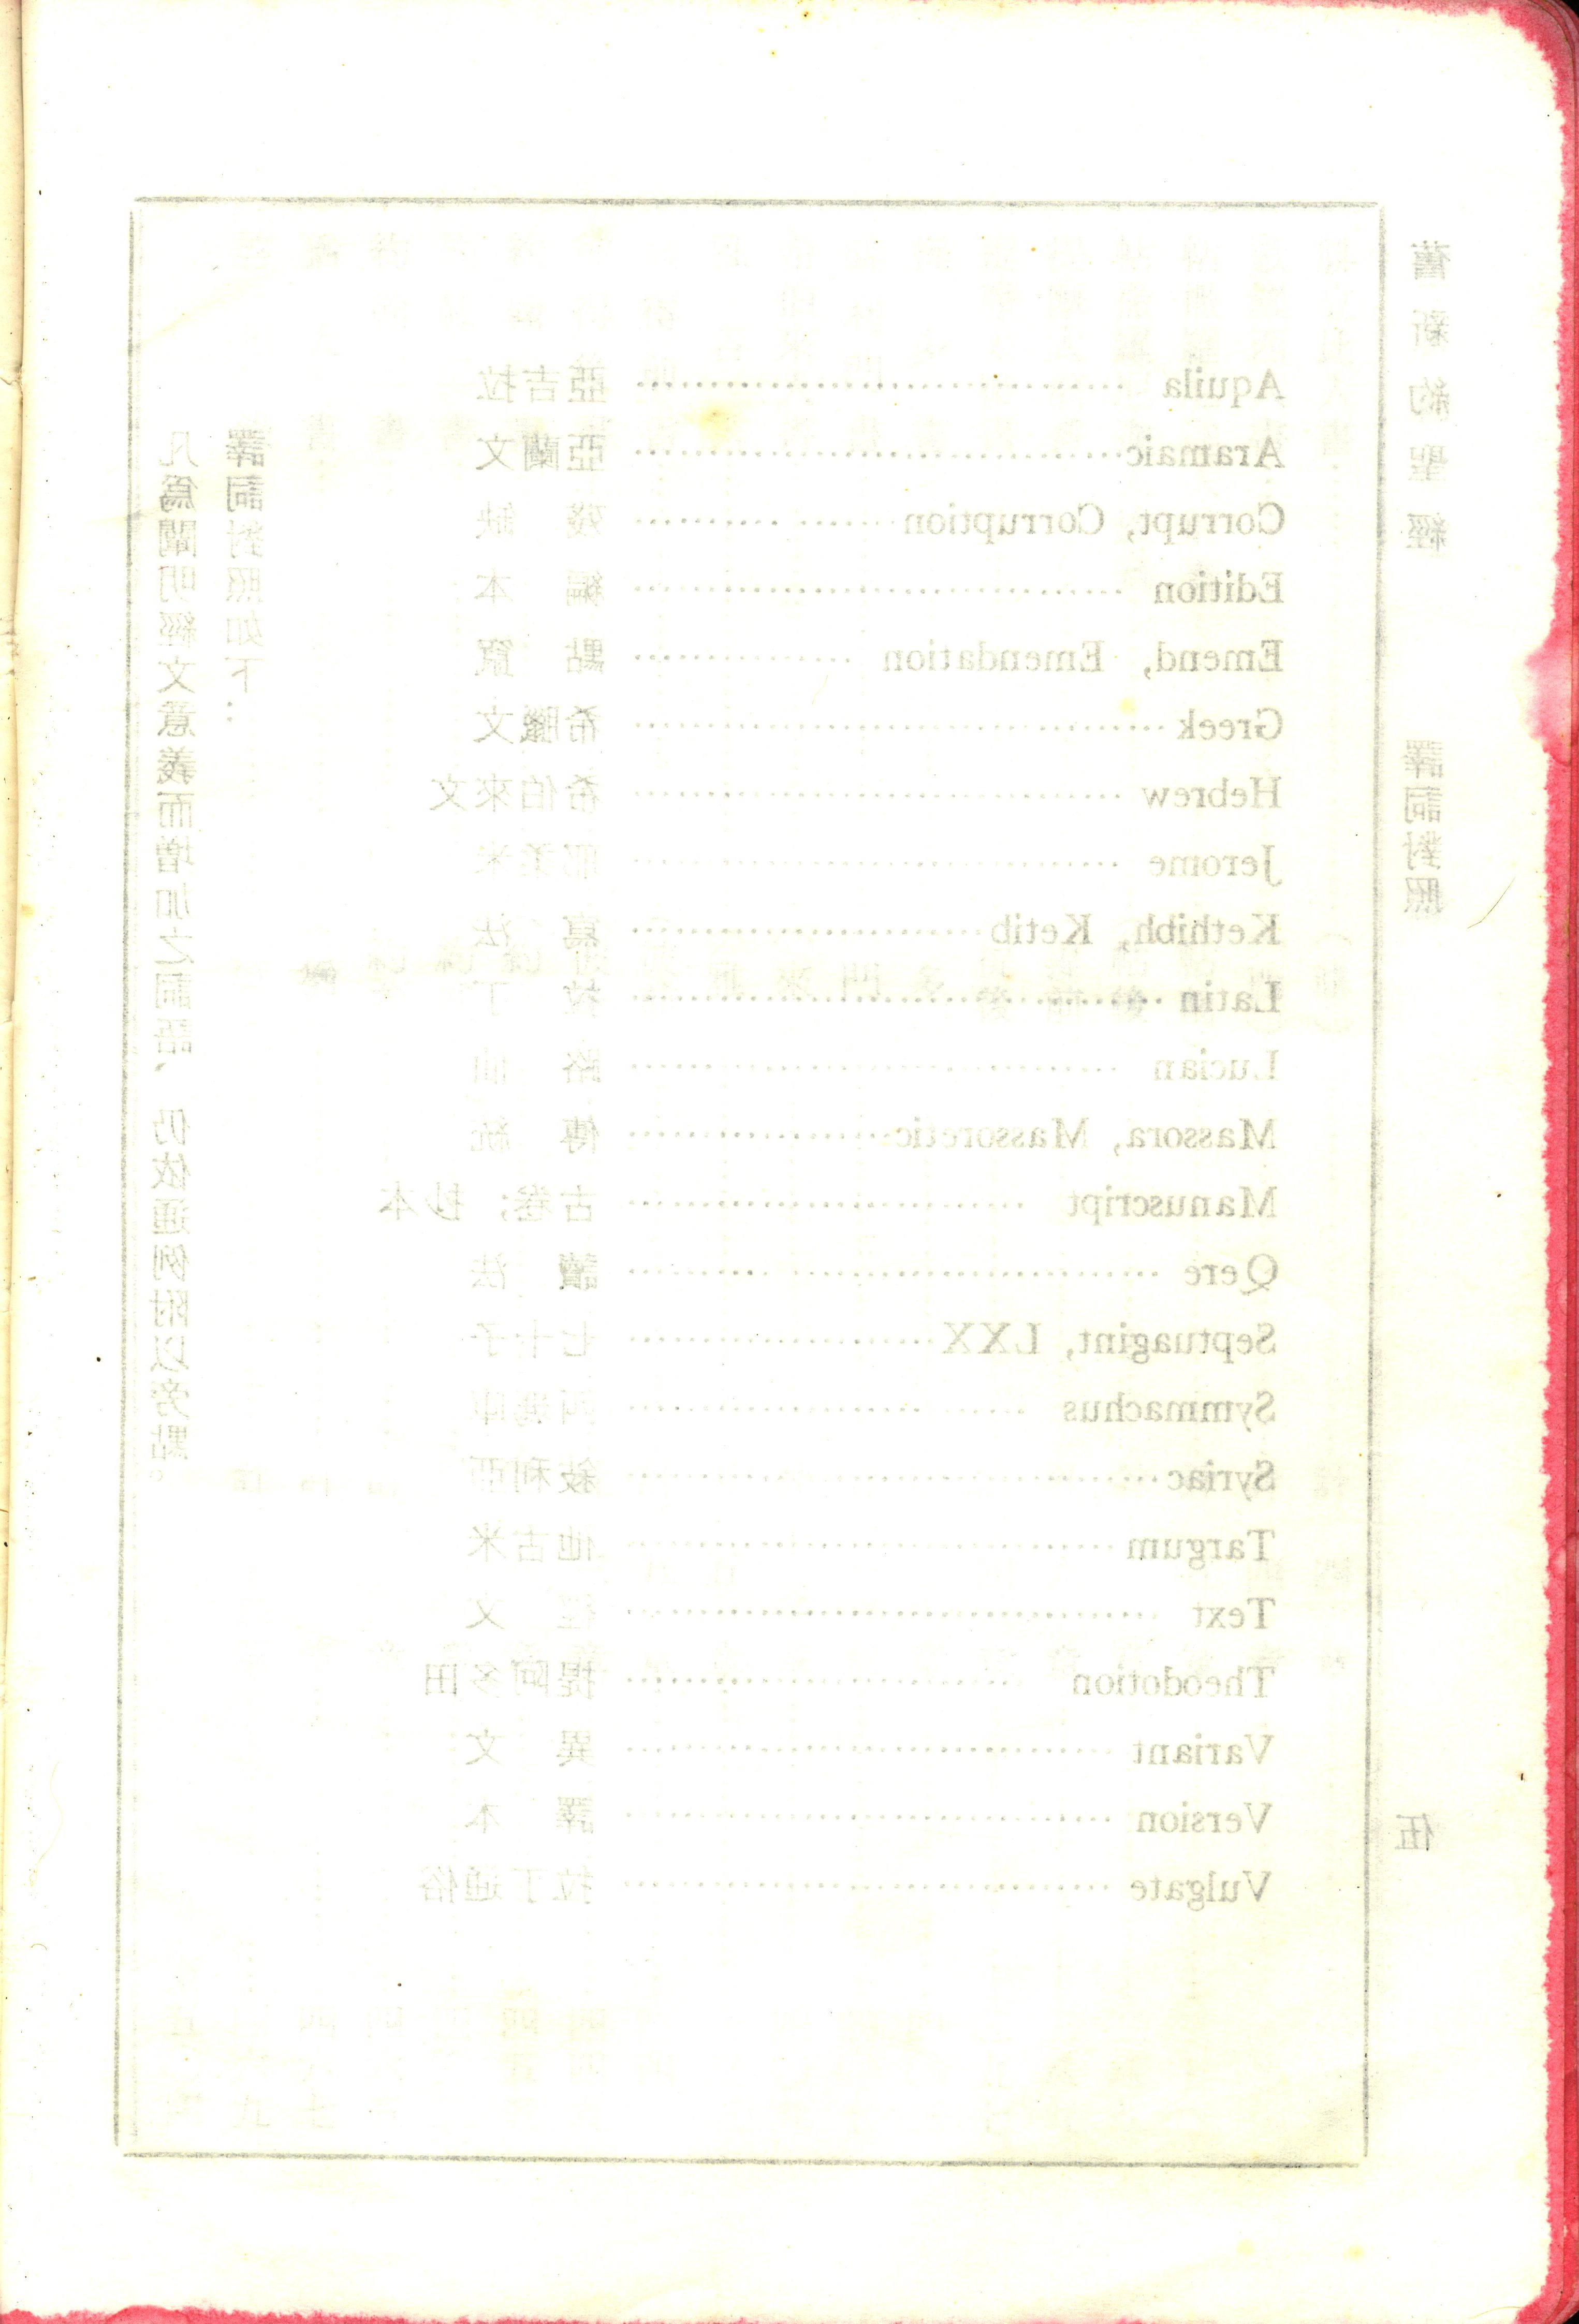 舊新約聖經 譯詞對照 伍
凡爲闡明經文意義而增加之詞語、仍依通例附以旁點。
譯詞對照如下：
Aquila 亞吉拉
Aramaic 亞蘭文
Corrupt, Corruption 殘缺
Edition 編本
Emend, Emendation 點竄
Greek 希臘文
Hebrew 希伯來文
Jerome 耶柔米
Kethibh, Ketib 寫法
Latin 拉丁
Lucian 路仙
Massora, Massoretic 傳統
Manuscript 古卷; 抄本
Qere 讀法
Septuagint, LXX 七十子
Symmachus
Syriac 敍利亞
Targum 他古米
Text 經文
Theodotion 提阿多田
Variant 異文
Version 譯本
Vulgate 拉丁通俗